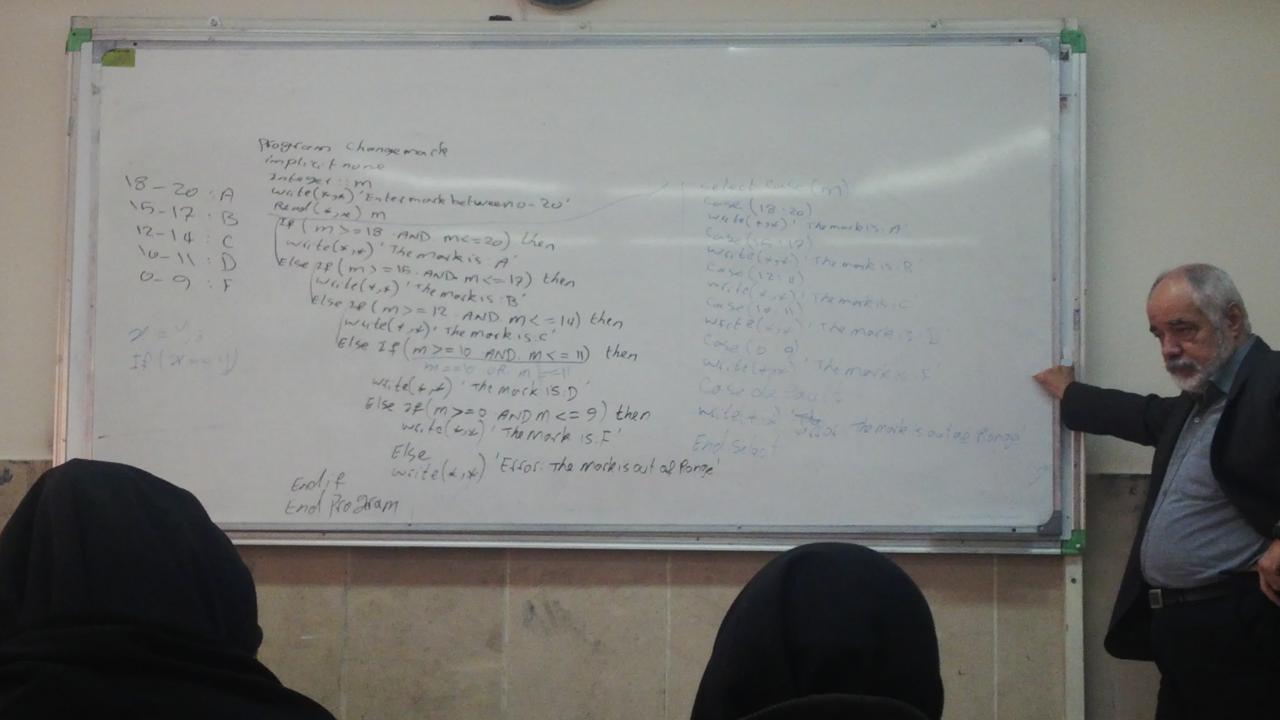 18-20 : A
15-17 : B
12-14 : C
10-11 : D
0-9 : F
If (x==4)
Program Changemark
implicit none
Integer :: m
write(*,*)'Enter mark between 0-20'
Read(*,*) m
If (m>=18 .AND. m<=20) then
write(*,*)'The mark is: A'
Else If (m>=15 .AND. m<=17) then
write(*,*)'The mark is: B'
Else If (m>=12 .AND. m<=14) then
write(*,*)'The mark is: C'
Else If (m>=10 .AND. m<=11) then
m==10 OR m==11
write(*,*)'The mark is: D'
Else If (m>=0 AND m<=9) then
write(*,*)'The mark is: F'
Else
write(*,*)'Error: The mark is out of Range'
End if
End Program
select case (m)
Case (18:20)
write(*,*)'The mark is: A'
Case (15:17)
write(*,*)'The mark is: B'
Case
write(*,*)'The mark is: C'
Case (10:11)
write(*,*)'The mark is: D'
Case (0:9)
write(*,*)'The mark is: F'
Case default
write The mark is out of Range'
End Select